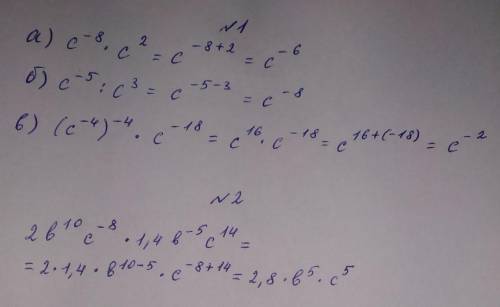 №1
а) c⁻⁸ · c² = c⁻⁸⁺² = c⁻⁶
б) c⁻⁵ : c³ = c⁻⁵⁻³ = c⁻⁸
в) (c⁻⁴)⁻⁴ · c⁻¹⁸ = c¹⁶ · c⁻¹⁸ = c¹⁶⁺⁽⁻¹⁸⁾ = c⁻²
№2
2 в¹⁰ c⁻⁸ · 1,4 в⁻⁵ c¹⁴ =
= 2 · 1,4 · в¹⁰⁻⁵ · c⁻⁸⁺¹⁴ = 2,8 · в⁵ · c⁵